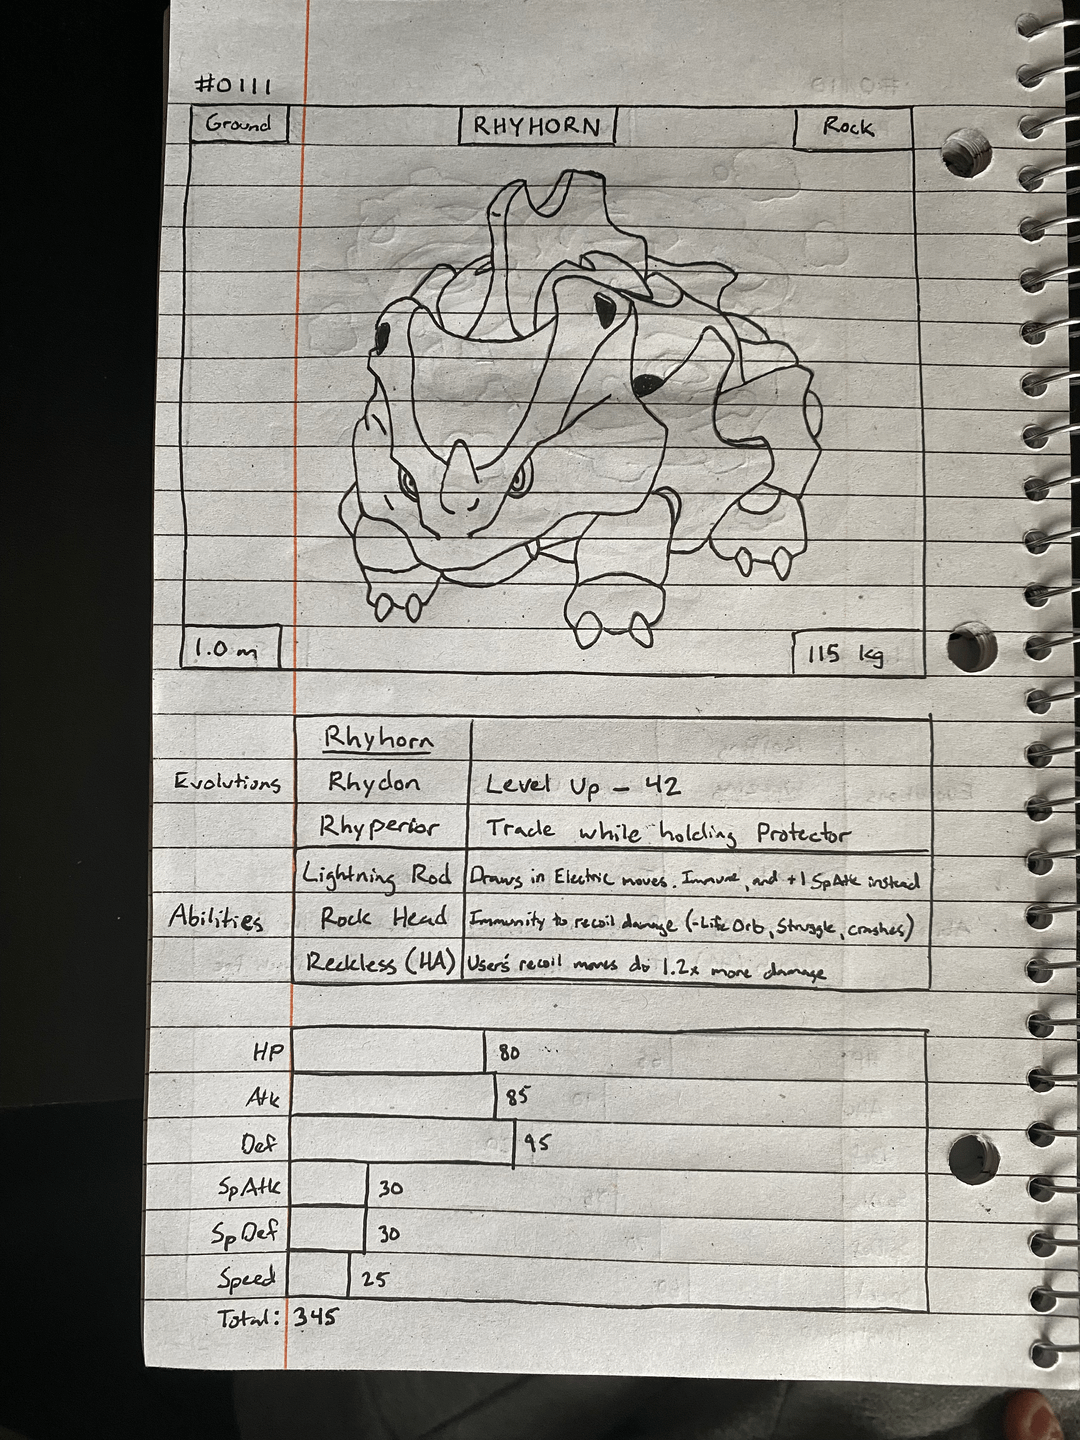 #0111
Ground RHYHORN Rock
1.0 m 115 kg
Rhyhorn
Evolutions Rhydon Level Up - 42
Rhyperior Trade while holding Protector
Lightning Rod Draws in Electric moves. Immune, and +1 SpAtk instead
Abilities Rock Head Immunity to recoil damage (-Life Orb, Struggle, crashes)
Reckless (HA) User's recoil moves do 1.2x more damage
HP 80
Atk 85
Def 95
SpAtk 30
SpDef 30
Speed 25
Total: 345